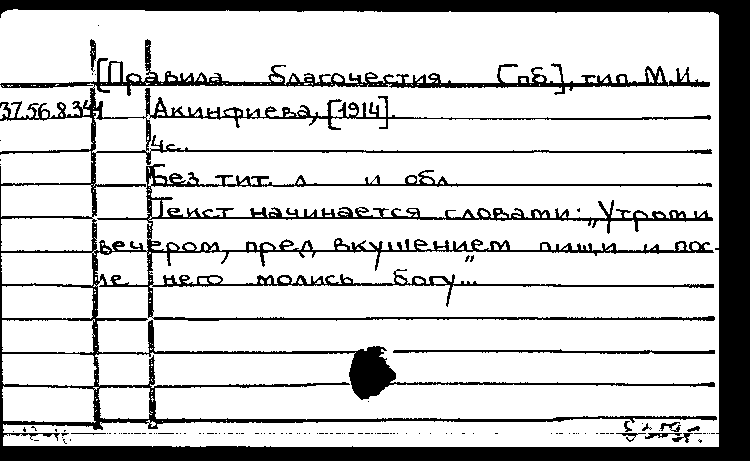 [Правила благочестия. Спб.], тип. М.И.
37.56.8.344 Акинфиева, [1914].
4с.
Без тит. л. и обл.
Текст начинается словами: „Утром и
вечером, пред вкушением пищи и пос-
ле него молись богу..."